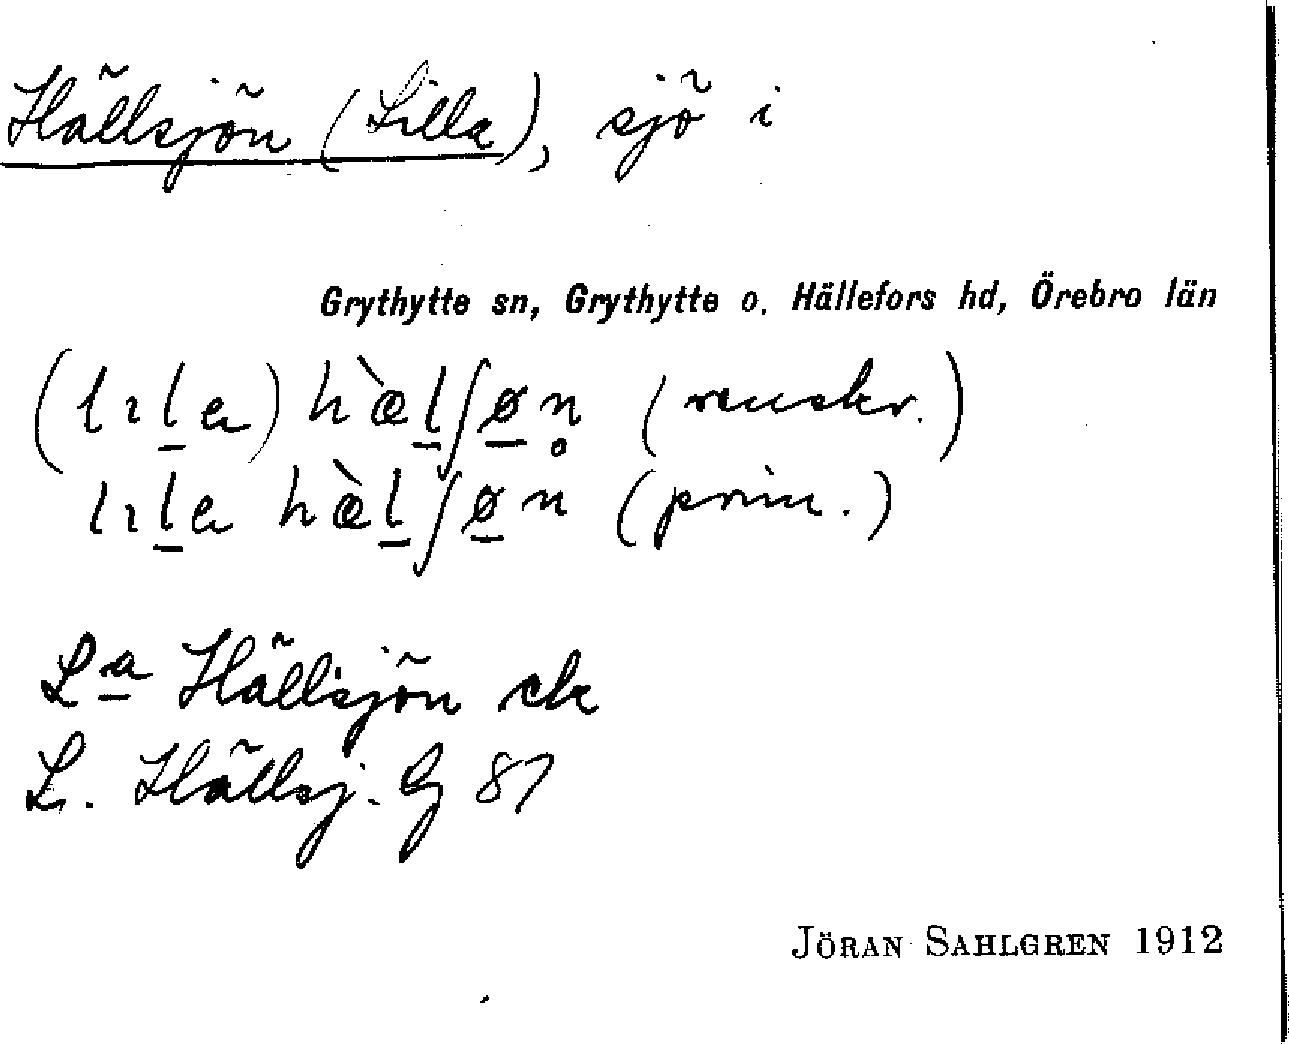 Hällsjön (Lilla), sjö i
Grythytte sn, Grythytte o. Hällefors hd, Örebro län
(lıl̲a) hæ̀l̲ʃø̲n̥ (renskr.)
lıl̲a hæ̀l̲ʃø̲n (prim.)
La Hällsjön ek
L. Hällsj. G 87
JÖRAN SAHLGREN 1912